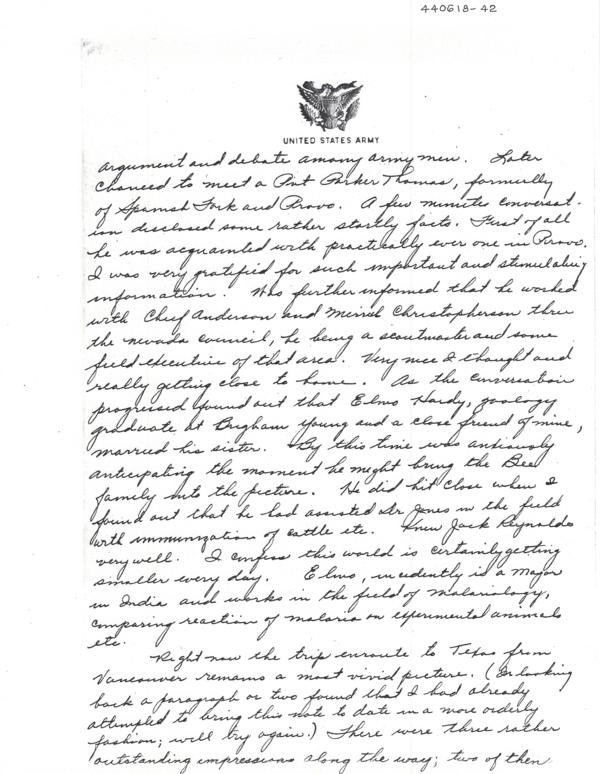 440618-42
UNITED STATES ARMY
argument and debate among army men. Later
chanced to meet a Pvt Parker Thomas, formerlly
of Spanish Fork and Provo. A few minutes conversat-
ion disclosed some rather startly facts. First of all
he was acquainted with practically ever one in Provo.
I was very gratified for such important and stimulating
information. Was further informed that he worked
with Chief Anderson and Merrill Christopherson thru
the nevada council, he being a scoutmaster and some
field executive of that area. Very nice I thought and
really getting close to home. As the conversation
progressed found out that Elmo Hardy, zoology
graduate at Brigham Young and a close friend of mine,
married his sister. By this time was anxiously
anticipating the moment he might bring the Bee
family into the picture. He did hit close when I
found out that he had assisted Dr Jones in the field
with immunization of cattle etc. Knew Jack Reynolds
very well. I confess this world is certainly getting
smaller every day. Elmo, incidently is a Major
in India and works in the field of malariology,
comparing reaction of malaria on experimental animals
etc.
Right now the trip enroute to Texas from
Vancouver remains a most vivid picture. (In looking
back a paragraph or two found that I had already
attempted to bring this note to date in a more orderly
fashion; will try again.) There were three rather
outstanding impressions along the way; two of them